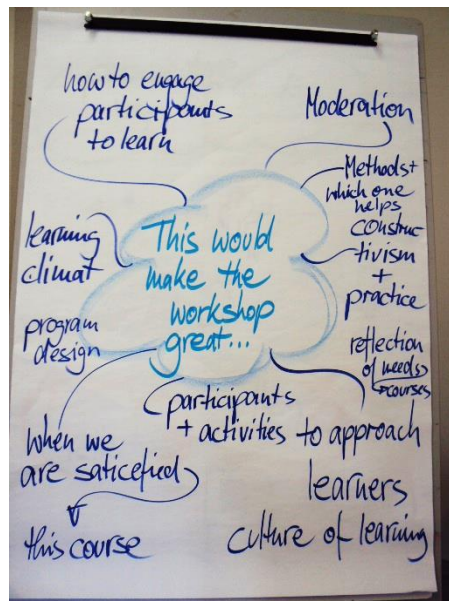 how to engage
participants
to learn
Moderation
Methods+
which one
helps
construc
tivism
+
practice
learning
climat
This would
make the
workshop
great...
program
design
reflection
of needs
→ courses
participants
+ activities to approach
learners
culture of learning
when we
are saticefied
this course